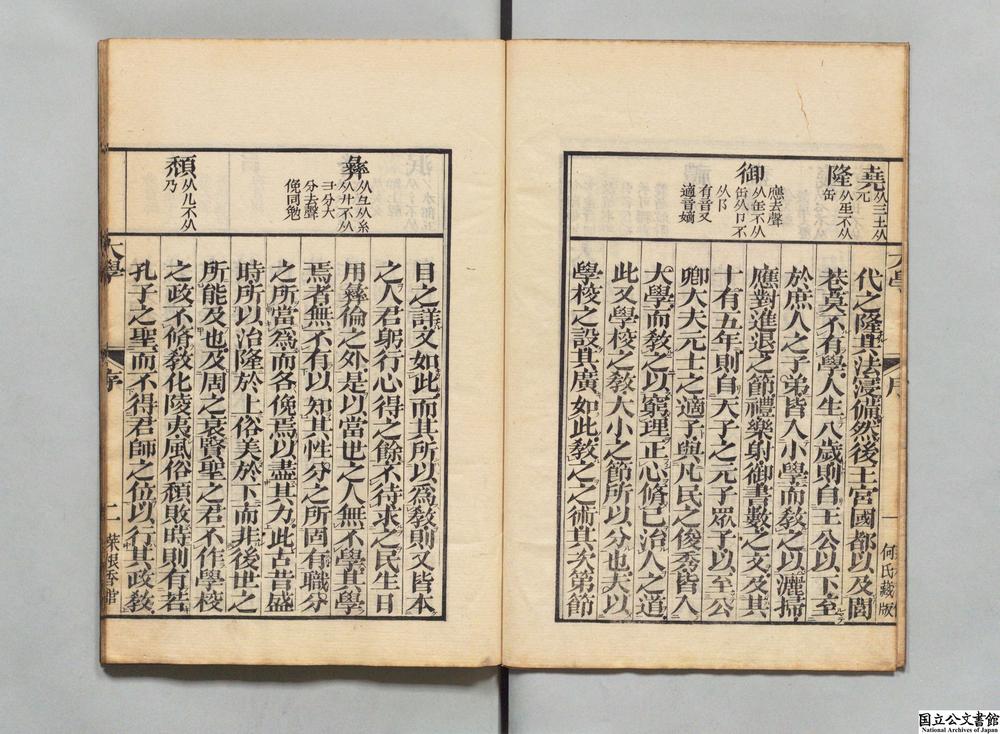 堯从三土从
元
隆从𤯓不从
缶
應去聲
御从缶从卩不
从阝
有音又
適音嫡
代之隆其法寖備然後王宮國都以及閭
巷莫不有學人生八歲則自王公以下至
於庶人之子弟皆入小學而教之以灑掃
應對進退之節禮樂射御書數之文及其
十有五年則自天子之元子眾子以至公
卿大夫元士之適子與凡民之俊秀皆入
大學而敎之以窮理正心脩己治人之道
此又學校之敎大小之節所以分也夫以
學校之設其廣如此敎之之術其次第節
大學 序 一 何氏藏版
彝从彑从糸
从廾不从
彐分大
分去聲
俛同勉
頹从儿不从
乃
目之詳又如此而其所以爲敎則又皆本
之人君躬行心得之餘不待求之民生日
用彝倫之外是以當世之人無不學其學
焉者無不有以知其性分之所固有職分
之所當爲而各俛焉以盡其力此古昔盛
時所以治隆於上俗美於下而非後世之
所能及也及周之衰賢聖之君不作學校
之政不脩敎化陵夷風俗頹敗時則有若
孔子之聖而不得君師之位以行其政敎
大學 序 二 菜根香館
国立公文書館
National Archives of Japan